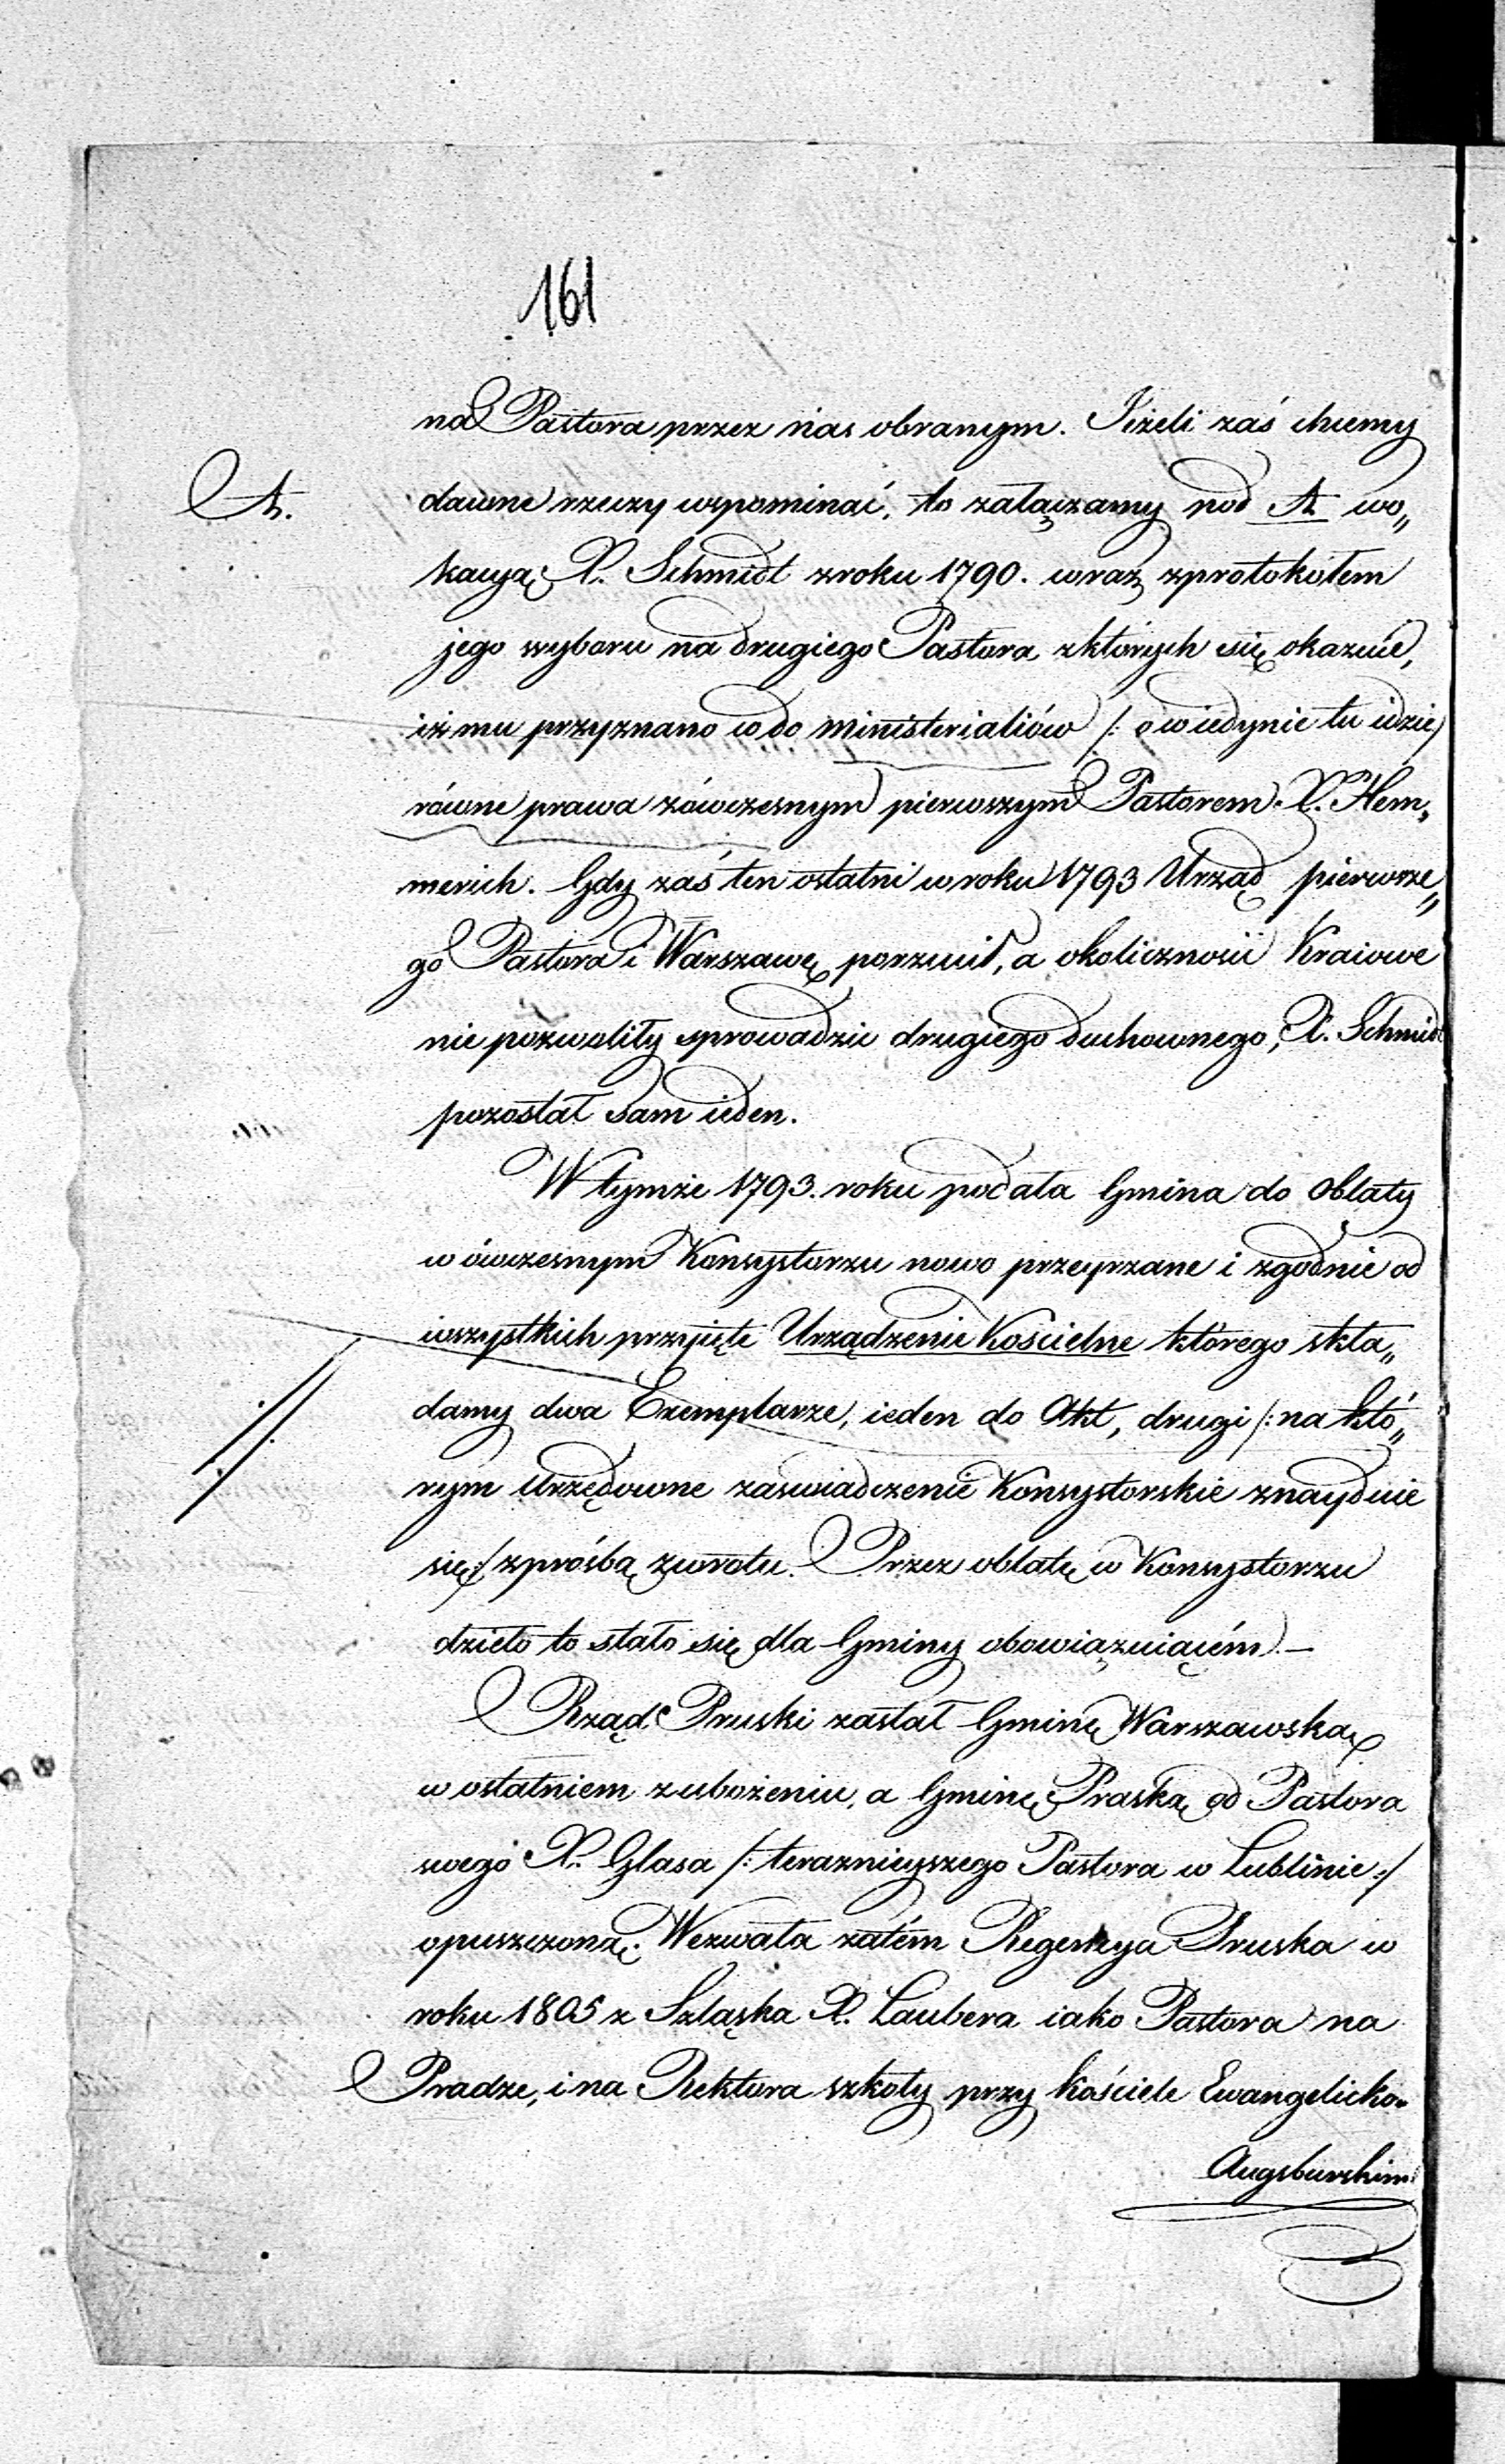 161
na Pastora przez nas obranym. Jeżeli zaś chcemy
A.
dawne rzeczy wspominać, to załączamy pod A wo„
kacyą X. Schmidt z roku 1790. wraz z protokołem
jego wyboru na drugiego Pastora z których się okazuie,
iż mu przyznano co do ministerialiów /: o co iedynie tu idzie/
równe prawa z ówczesnym pierwszym Pastorem X. Hem„
merich. Gdy zaś ten ostatni w roku 1793 Urząd pierwsze„
go Pastora i Warszawę porzucił, a okoliczności Kraiowe
nie pozwoliły sprowadzić drugiego duchownego, X. Schmidt
pozostał sam ieden.
W tymże 1793. roku podała Gmina do oblaty
w ówczesnym Konsystorzu nowo przeyrzane i zgodnie od
wszystkich przyięte Urządzenie Kościelne którego skła„
damy dwa Exemplarze, ieden do Akt, drugi /: na któ„
rym urzędowne zaświadczenie Konsystorskie znayduie
się :/ z prośbą zwrotu. Przez oblatę w Konsystorzu
dzieło to stało się dla Gminy obowiązuiącém. —
Rząd Pruski zastał Gminę Warszawską
w ostatniem zubożeniu, a Gminę Praską od Pastora
swego X. Glasa /: terazniejszego Pastora w Lublinie :/
opuszczoną. Wezwała zatém Regencya Pruska w
roku 1805 z Szląska X. Laubera iako Pastora na
Pradze, i na Rektora szkoły przy kościele Ewangelicko-
Augsburskim